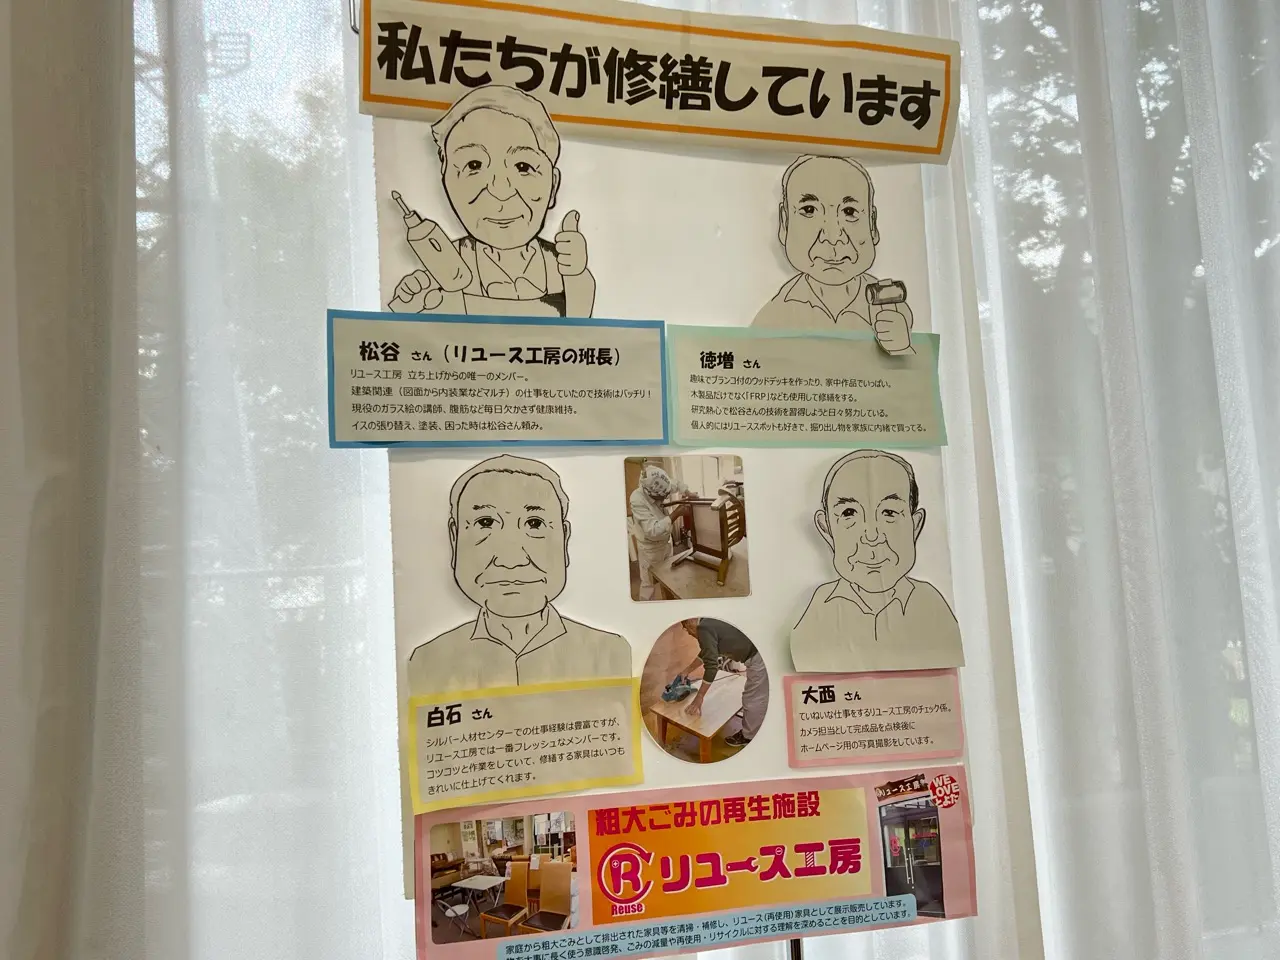 私たちが修繕しています
松谷 さん（リユース工房の班長）
リユース工房 立ち上げからの唯一のメンバー。
建築関連（図面から内装業などマルチ）の仕事をしていたので技術はバッチリ！
現役のガラス絵の講師、腹筋など毎日欠かさず健康維持。
イスの張り替え、塗装、困った時は松谷さん頼み。
徳増 さん
趣味でブランコ付のウッドデッキを作ったり、家中作品でいっぱい。
木製品だけでなく「FRP」なども使用して修繕をする。
研究熱心で松谷さんの技術を習得しようと日々努力している。
個人的にはリユーススポットも好きで、掘り出し物を家族に内緒で買ってる。
白石 さん
シルバー人材センターでの仕事経験は豊富ですが、
リユース工房では一番フレッシュなメンバーです。
コツコツと作業をしていて、修繕する家具はいつも
きれいに仕上げてくれます。
大西 さん
ていねいな仕事をするリユース工房のチェック係。
カメラ担当として完成品を点検後に
ホームページ用の写真撮影をしています。
粗大ごみの再生施設
R リユース工房
Reuse
リユース工房
WE
LOVE
とよた
家庭から粗大ごみとして排出された家具等を清掃・補修し、リユース（再使用）家具として展示販売しています。
物を大事に長く使う意識啓発、ごみの減量や再使用・リサイクルに対する理解を深めることを目的としています。